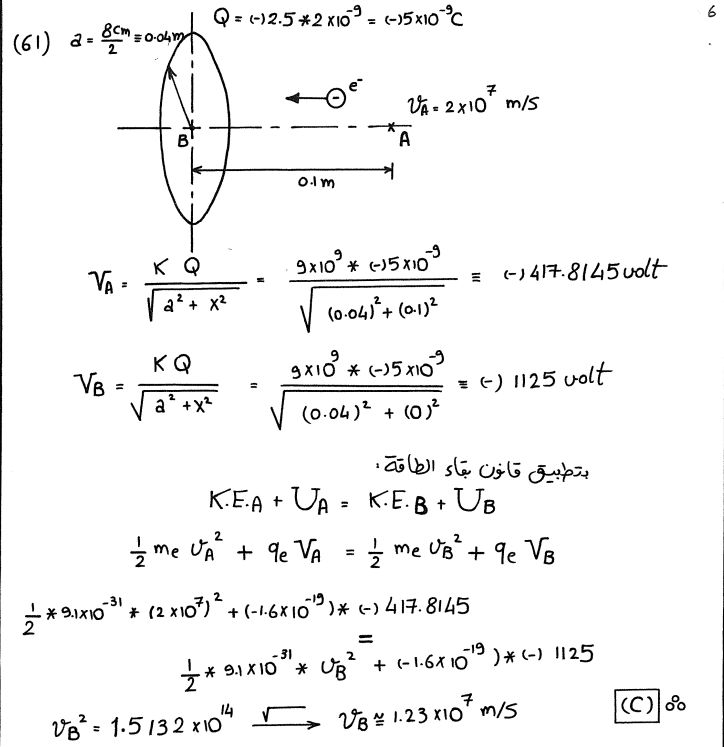 6
Q = (-) 2.5 * 2 x 10⁻⁹ = (-) 5x10⁻⁹C
(61) a = 8cm/2 ≡ 0.04m
e⁻
v_A = 2x10⁷ m/s
B A
0.1 m
V_A = K Q / √(a² + x²) = 9x10⁹ * (-)5x10⁻⁹ / √((0.04)² + (0.1)²) ≡ (-) 417.8145 volt
V_B = K Q / √(a² + x²) = 9x10⁹ * (-)5x10⁻⁹ / √((0.04)² + (0)²) ≡ (-) 1125 volt
بتطبيق قانون بقاء الطاقة:
K.E.A + U_A = K.E.B + U_B
1/2 me v_A² + qe V_A = 1/2 me v_B² + qe V_B
1/2 * 9.1x10⁻³¹ * (2x10⁷)² + (-1.6x10⁻¹⁹) * (-) 417.8145
=
1/2 * 9.1x10⁻³¹ * v_B² + (-1.6x10⁻¹⁹) * (-) 1125
v_B² = 1.5132 x10¹⁴ √ → v_B ≅ 1.23x10⁷ m/s (C)